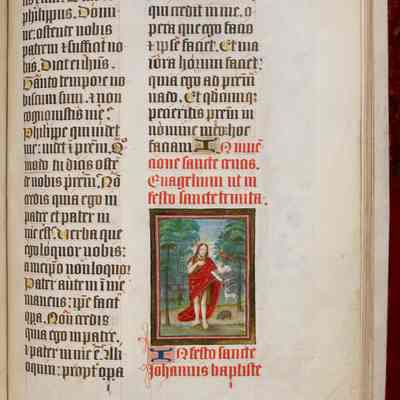 philippus. Domi
ne: ostende nobis
patrem ⁊ sufficit no
bis. Dicit ei ihūs.
Tanto tempore uo
biscum sum. ⁊ non
cognouistis me:
Philippe qui uidet
me: uidet ⁊ prēm. Q
modo tu dicis oste
de nobis prēm. Nō
credis quia ego in
patre et pater in
me est. Verba que
ego loquor uobis:
a meipo non loquor
Pater autem ī me
manens: ipse facit
opa. Non credis
quia ego in patre.
⁊ pater in me ē. Ali
oquin: propt opa
qui credit in me. o
pera que ego facio
⁊ ipse faciet. Et ma
iora horum faciet:
quia ego ad prēm
uado. Et qdcumq
petieritis prēm in
nomine meo: hoc
faciam. In inuē
cione sancte crucis.
Euagelium ut in
festo sancte trinita.
In festo sancte
Johannis baptiste